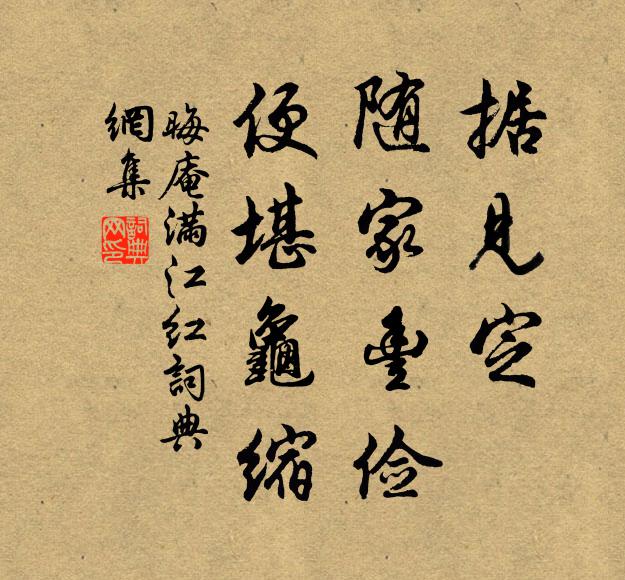 据见定
随家丰俭
便堪龟缩
晦庵满江红词典
网集
词典网印